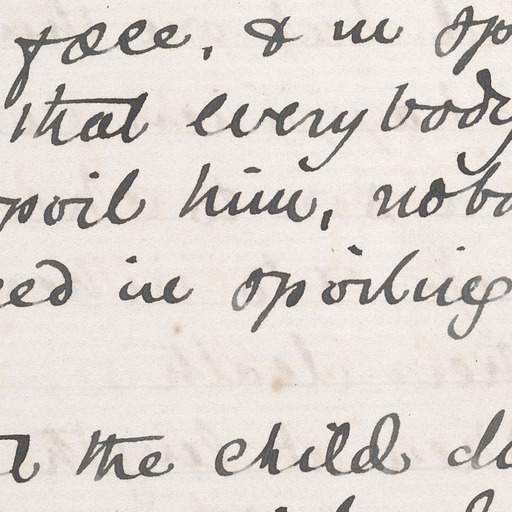 face, & in sp
that everybody
spoil him, nobo
eed in spoiling
the child do